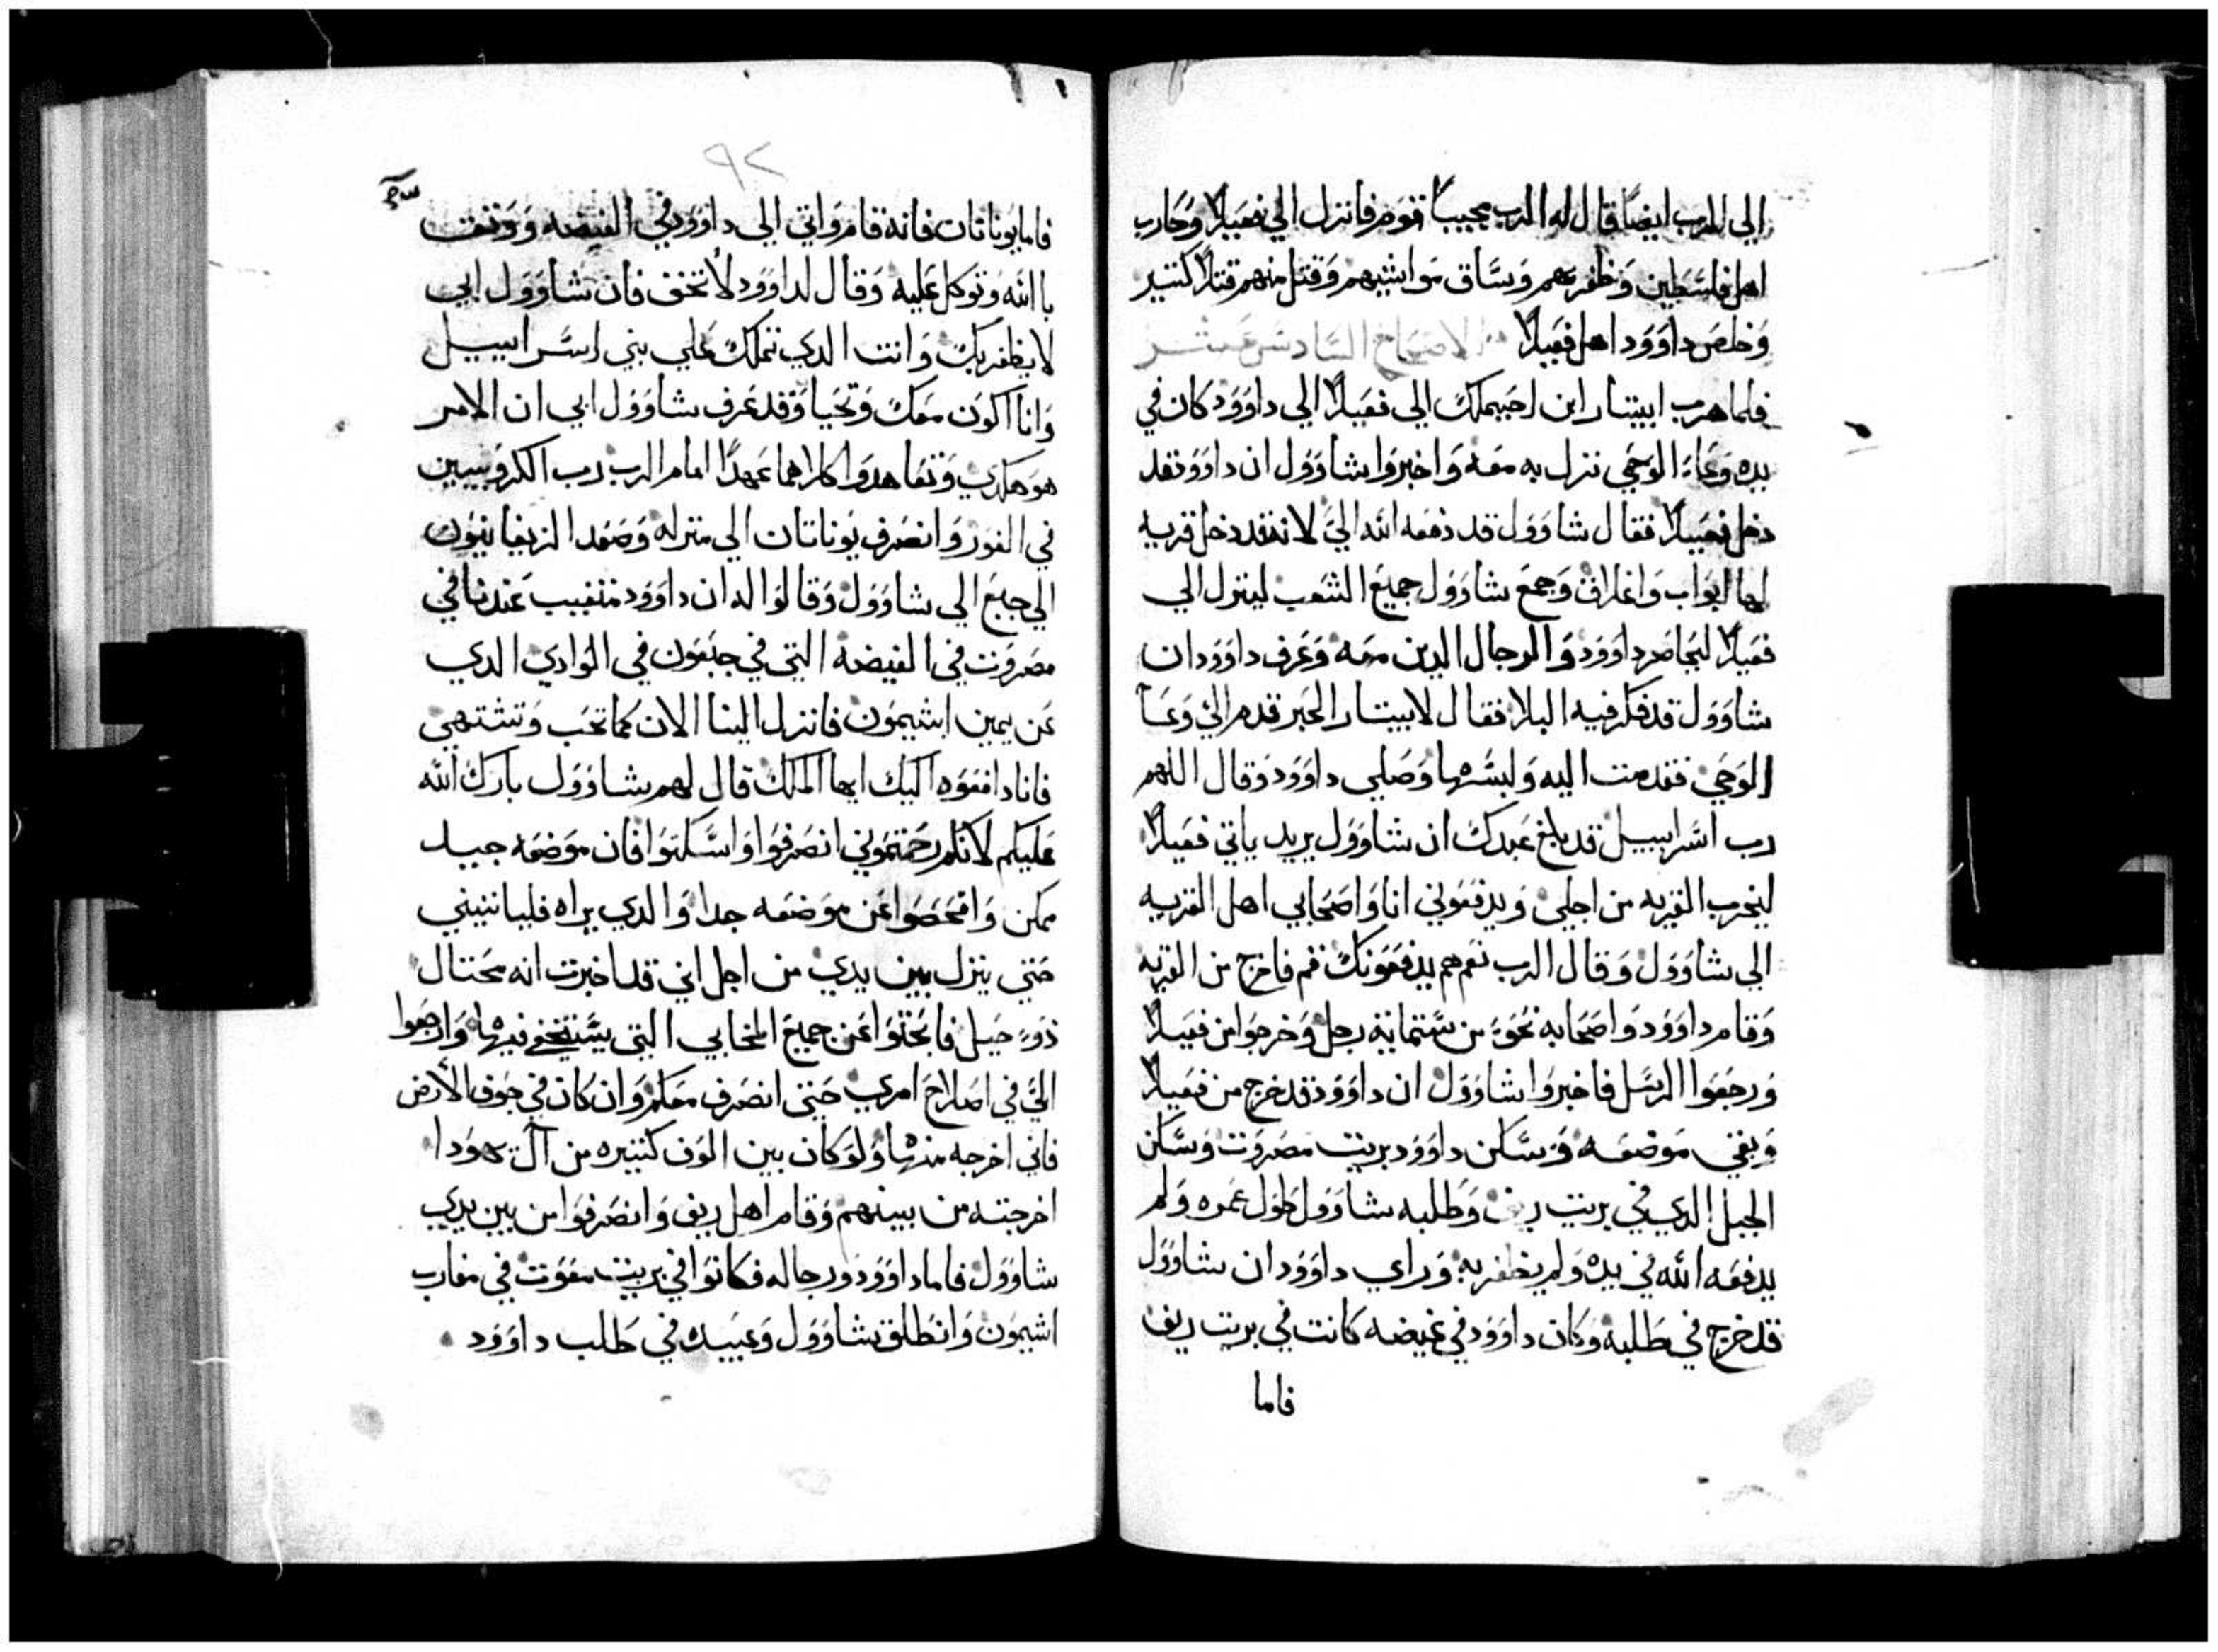 الي الرب ايضًا قال له الرب مجيبًا قوم فانزل الي قعيلا وحارب
اهل فلسطين وظفر بهم وساق مواشيهم وقتل منهم قتلا كتير
وخلص داوود اهل قعيلا الاصحاح السادس عشر
فلما هرب ابيتار ابن احيملك الي قعيلا الي داوود كان في
يده وعاء الوحي نزل به معه واخبروا شاوول ان داوود قد
دخل قعيلا فقال شاوول قد دفعه الله الي لانه قد دخل قريه
لها ابواب واغلاق وجمع شاوول جميع الشعب لينزل الي
قعيلا ليحاصر داوود والرجال الدين معه وعرف داوود ان
شاوول قد فكر فيه البلا فقال لابيتار الحبر قدم الي وعا
الوحي فقدمت اليه ولبسها وصلي داوود وقال اللهم
رب اسراييل قد بلغ عبدك ان شاوول يريد ياتي قعيلا
ليخرب القريه من اجلي ويدفعوني انا واصحابي اهل القريه
الي شاوول وقال الرب نعم هم يدفعونك قم فاخرج من القريه
وقام داوود واصحابه نحو من ستمايه رجل وخرجوا من قعيلا
ورجعوا الرسل فاخبروا شاوول ان داوود قد خرج من قعيلا
وبقي موضعه وسكن داوود بريت مصروت وسكن
الجبل الدي في بريت ريف وطلبه شاوول طول عمره ولم
يدفعه الله في يده ولم يظفر به وراي داوود ان شاوول
قد خرج في طلبه وكان داوود في غيضه كانت في بريت ريف
فاما
٩٢
فاما يوناتان فانه قام واتي الي داوود في الغيضه ووتق
بالله وتوكل عليه وقال لداوود لا تخف فان شاوول ابي
لا يظفر بك وانت الدي تملك علي بني اسراييل
وانا اكون معك وتحيا وقد عرف شاوول ابي ان الامر
هو هكدي وتعاهدوا كلاهما عهدًا امام الرب رب الكروبيين
في الغور وانصرف يوناتان الي منزله وصعد الزيفانيون
الي جبع الي شاوول وقالوا له ان داوود متغيب عندنا في
مصروت في الغيضة التي في جبعون في الوادي الدي
عن يمين اشيمون فانزل الينا الان كما تحب وتشتهي
فانا دافعوه اليك ايها الملك قال لهم شاوول بارك الله
عليكم لانكم رحمتموني انصرفوا واسكتوا فان موضعه جيد
ممكن وافحصوا عن موضعه جدا والدي يراه فلياتيني
حتي ينزل بين يدي من اجل اني قد اخبرت انه محتال
دو حيل فابحتوا عن جميع المخابي التي يستخفي فيها وارجعوا
الي في اصلاح امري حتي انصرف معكم وان كان في جوف الارض
فاني اخرجه منها ولو كان بين الوف كتيره من آل يهودا
اخرجته من بينهم وقام اهل ريف وانصرفوا من بين يدي
شاوول فاما داوود ورجاله فكانوا في بريت معوت في مغارب
اشيمون وانطلق شاوول وعبيده في طلب داوود